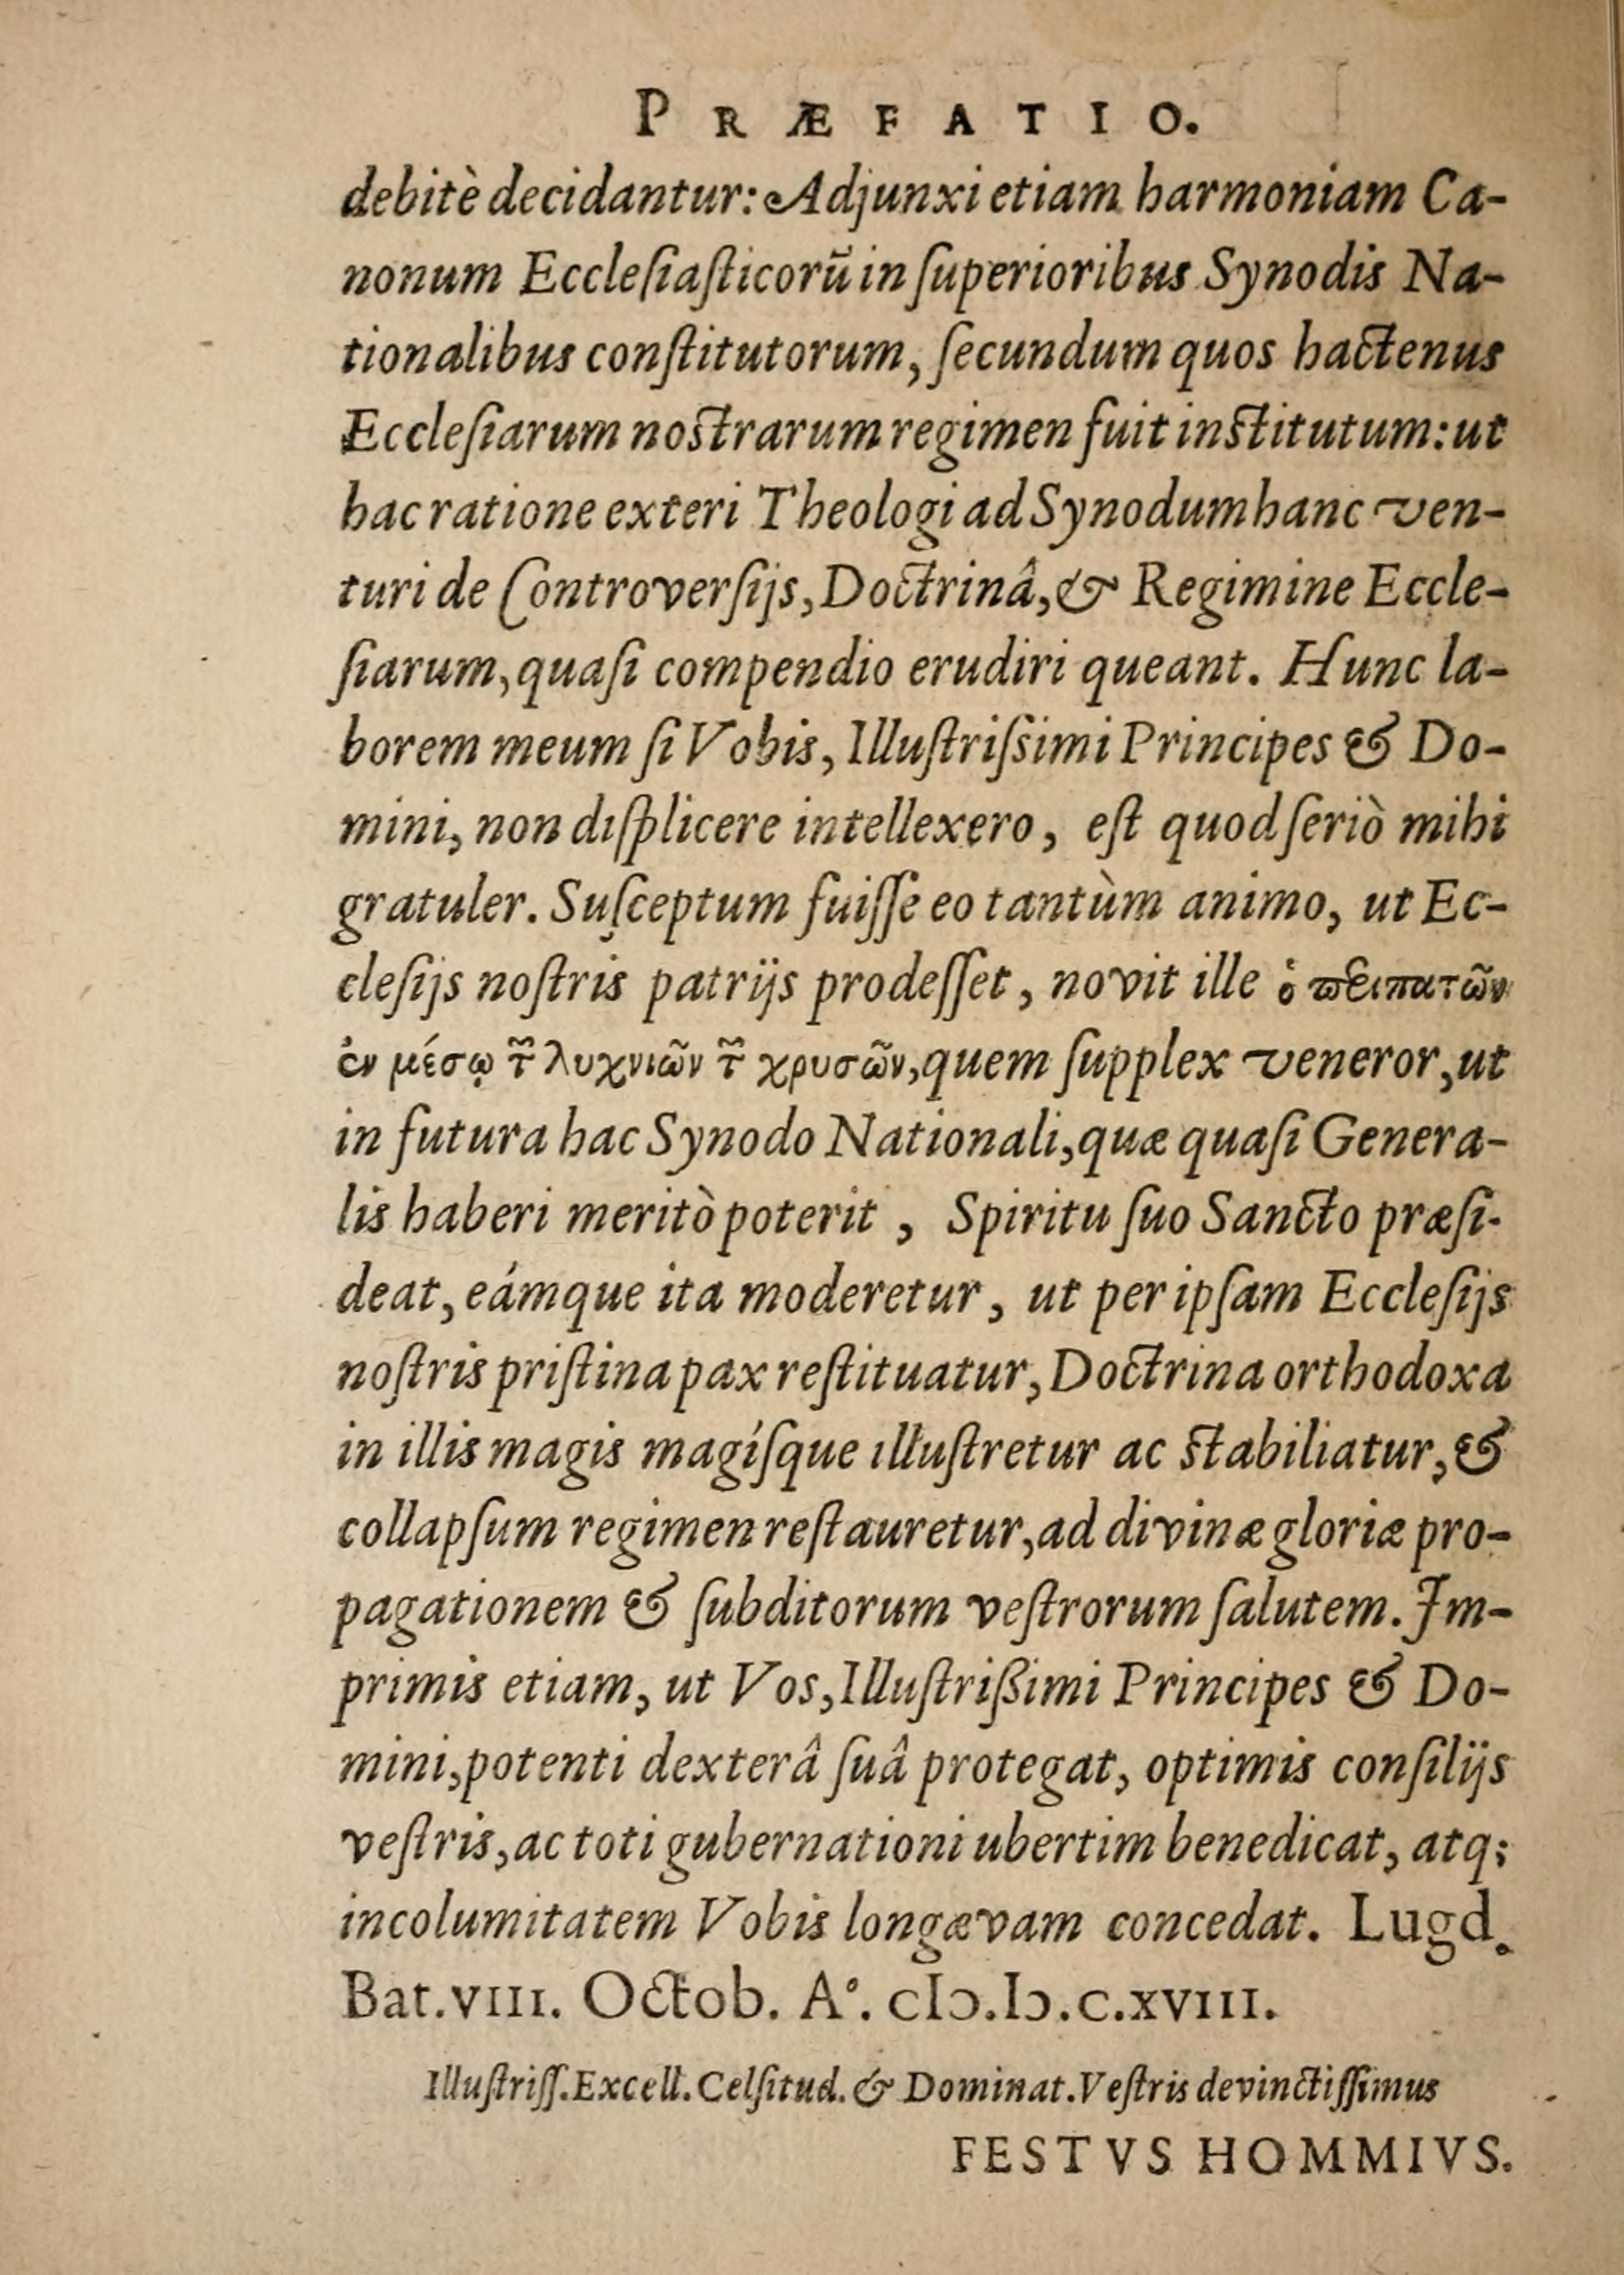 PRÆFATIO.
debitè decidantur: Adjunxi etiam harmoniam Ca-
nonum Eccleſiaſticorū in ſuperioribus Synodis Na-
tionalibus conſtitutorum, ſecundum quos hactenus
Eccleſiarum nostrarum regimen fuit institutum: ut
hac ratione exteri Theologi ad Synodum hanc ven-
turi de Controverſijs, Doctrinâ, & Regimine Eccle-
ſiarum, quaſi compendio erudiri queant. Hunc la-
borem meum ſi Vobis, Illuſtriſsimi Principes & Do-
mini, non diſplicere intellexero, eſt quod ſeriò mihi
gratuler. Suſceptum fuiſſe eo tantùm animo, ut Ec-
cleſijs noſtris patrijs prodeſſet, novit ille ὁ περιπατῶν
ἐν μέσῳ τ͂ λυχνιῶν τ͂ χρυσῶν, quem ſupplex veneror, ut
in futura hac Synodo Nationali, quæ quaſi Genera-
lis haberi meritò poterit, Spiritu ſuo Sancto præſi-
deat, eámque ita moderetur, ut per ipſam Eccleſijs
noſtris priſtina pax reſtituatur, Doctrina orthodoxa
in illis magis magíſque illuſtretur ac stabiliatur, &
collapſum regimen reſtauretur, ad divinæ gloriæ pro-
pagationem & ſubditorum veſtrorum ſalutem. Im-
primis etiam, ut Vos, Illuſtrißimi Principes & Do-
mini, potenti dexterâ ſuâ protegat, optimis conſilijs
veſtris, ac toti gubernationi ubertim benedicat, atq;
incolumitatem Vobis longævam concedat. Lugd.
Bat. VIII. Octob. A°. cIↄ.Iↄ.c.XVIII.
Illuſtriſſ. Excell. Celſitud. & Dominat. Veſtris devinctiſſimus
FESTVS HOMMIVS.